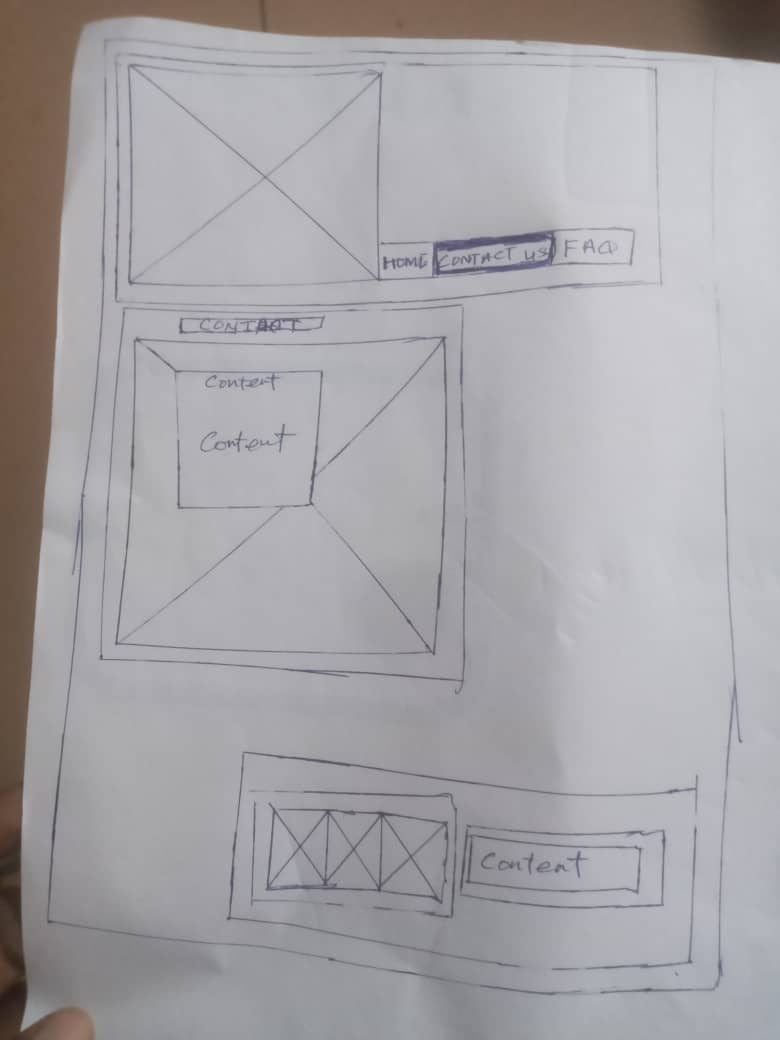 HOME CONTACT US FAQ
CONTACT
Content
Content
Content